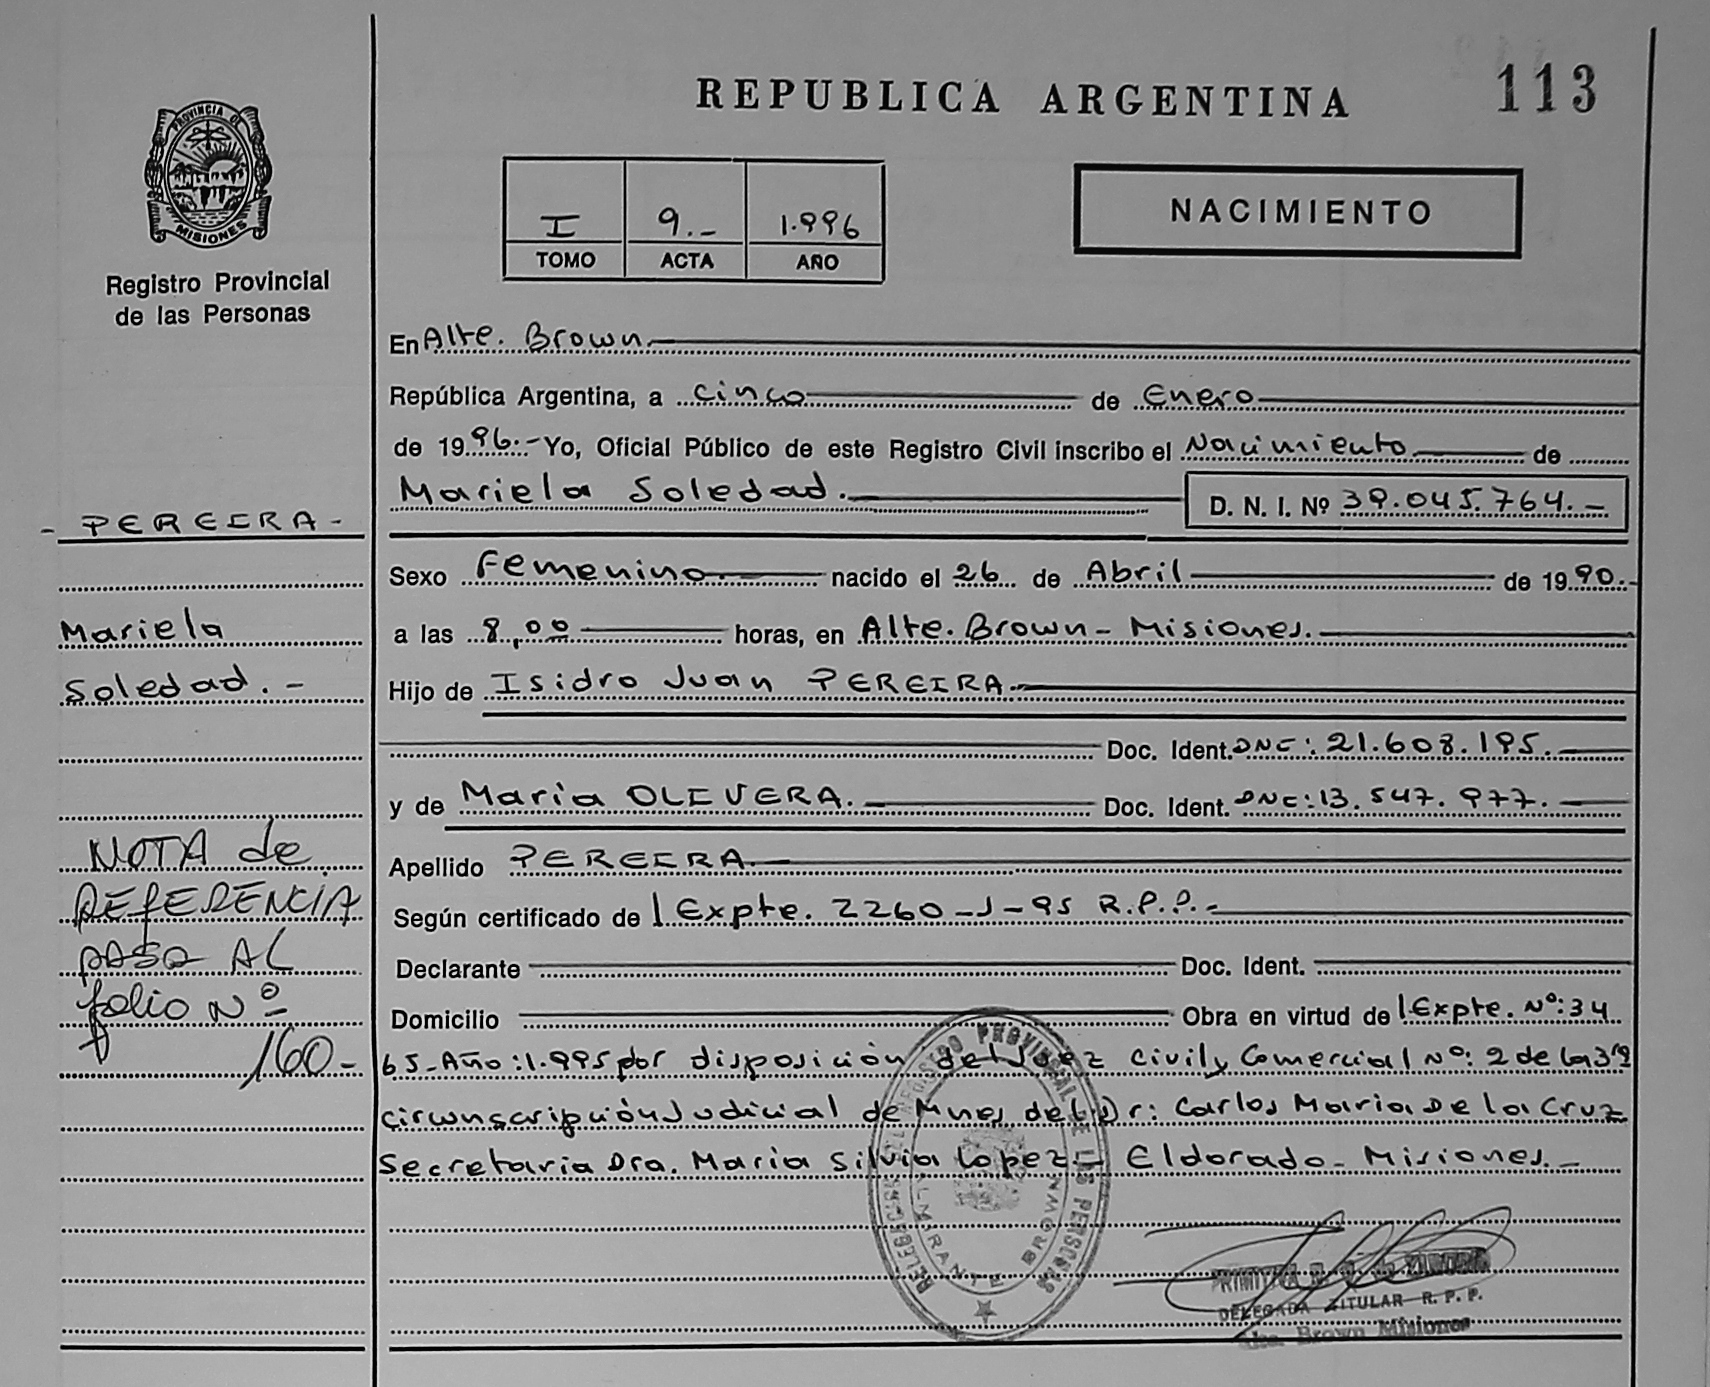 REPUBLICA ARGENTINA
113
PROVINCIA DE
MISIONES
Registro Provincial
de las Personas
I 9.- 1.996
TOMO ACTA AÑO
NACIMIENTO
En Alte. Brown
República Argentina, a cinco de Enero
de 1996.- Yo, Oficial Público de este Registro Civil inscribo el Nacimiento de
Mariela Soledad. D. N. I. Nº 39.045.764.-
Sexo Femenino nacido el 26 de Abril de 1990.-
a las 8,00 horas, en Alte. Brown - Misiones.
Hijo de Isidro Juan PEREIRA.
Doc. Ident. DNI: 21.608.195.
y de Maria OLIVERA. Doc. Ident. DNI: 13.547.977.
Apellido PEREIRA.
Según certificado de Expte. 2260-J-95 R.P.P.-
Declarante Doc. Ident.
Domicilio Obra en virtud de Expte. Nº: 34
65-Año: 1.995 por disposición del Juez Civil y Comercial Nº: 2 de la 3ra
circunscripción Judicial de Mnes del Dr: Carlos Maria De la Cruz
Secretaria Dra. Maria Silvia Lopez - Eldorado - Misiones.-
- PEREIRA -
Mariela
Soledad.-
NOTA de
REFERENCIA
PASA AL
folio Nº
160-
REGISTRO PROVINCIAL DE LAS PERSONAS
ALMIRANTE BROWN
DELEGADA TITULAR R. P. P.
Alte. Brown Misiones